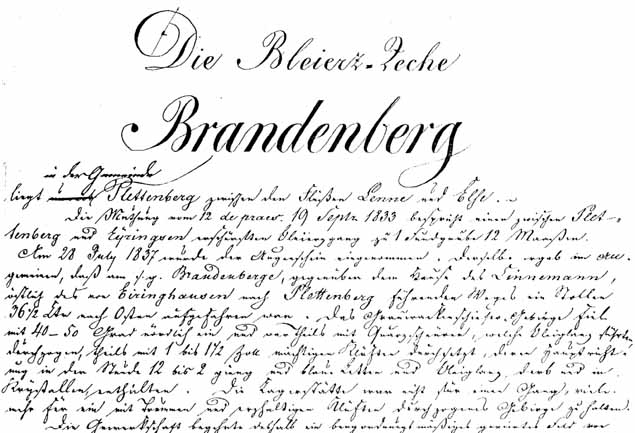 Die Bleierz-Zeche
Brandenberg
in der Gemeinde
liegt Plettenberg zwischen den Flüßen Lenne und Else.
Die Muthung vom 12 de praes. 19 Septr. 1833 bespricht einen zwischen Plet-
tenberg und Eyringsen erschürften Bleierzgang zu 1 Fundgrube 12 Maaßen.
Am 28 July 1837 wurde der Augenschein eingenommen. Derselbe ergab im All-
gemeinen, daß am s.g. Brandenberge, gegenüber dem Hause des Linnemann,
östlich des von Eiringhausen nach Plettenberg führenden Weges ein Stollen
36 1/2 Ltr nach Osten aufgefahren war. Das Grauwackenschiefer-Gebirge fiel
mit 40-50 Grad nördlich ein und war theils mit Quarzschnüren, welche Bleiglanz führten,
durchzogen, theils mit 1 bis 1 1/2 Zoll mächtigen Klüften durchsetzt, deren Hauptricht-
ung in dem Stunde 12 bis 2 ging und blaue Letten und Bleiglanz, derb und in
Krystallen, enthalten. Die Lagerstätte war nicht für einen Gang, viel-
mehr für ein mit Trümmern und erzhaltigen Klüften durchzogenes Gebirge zu halten.
Die Gewerkschaft begehrte deshalb ein